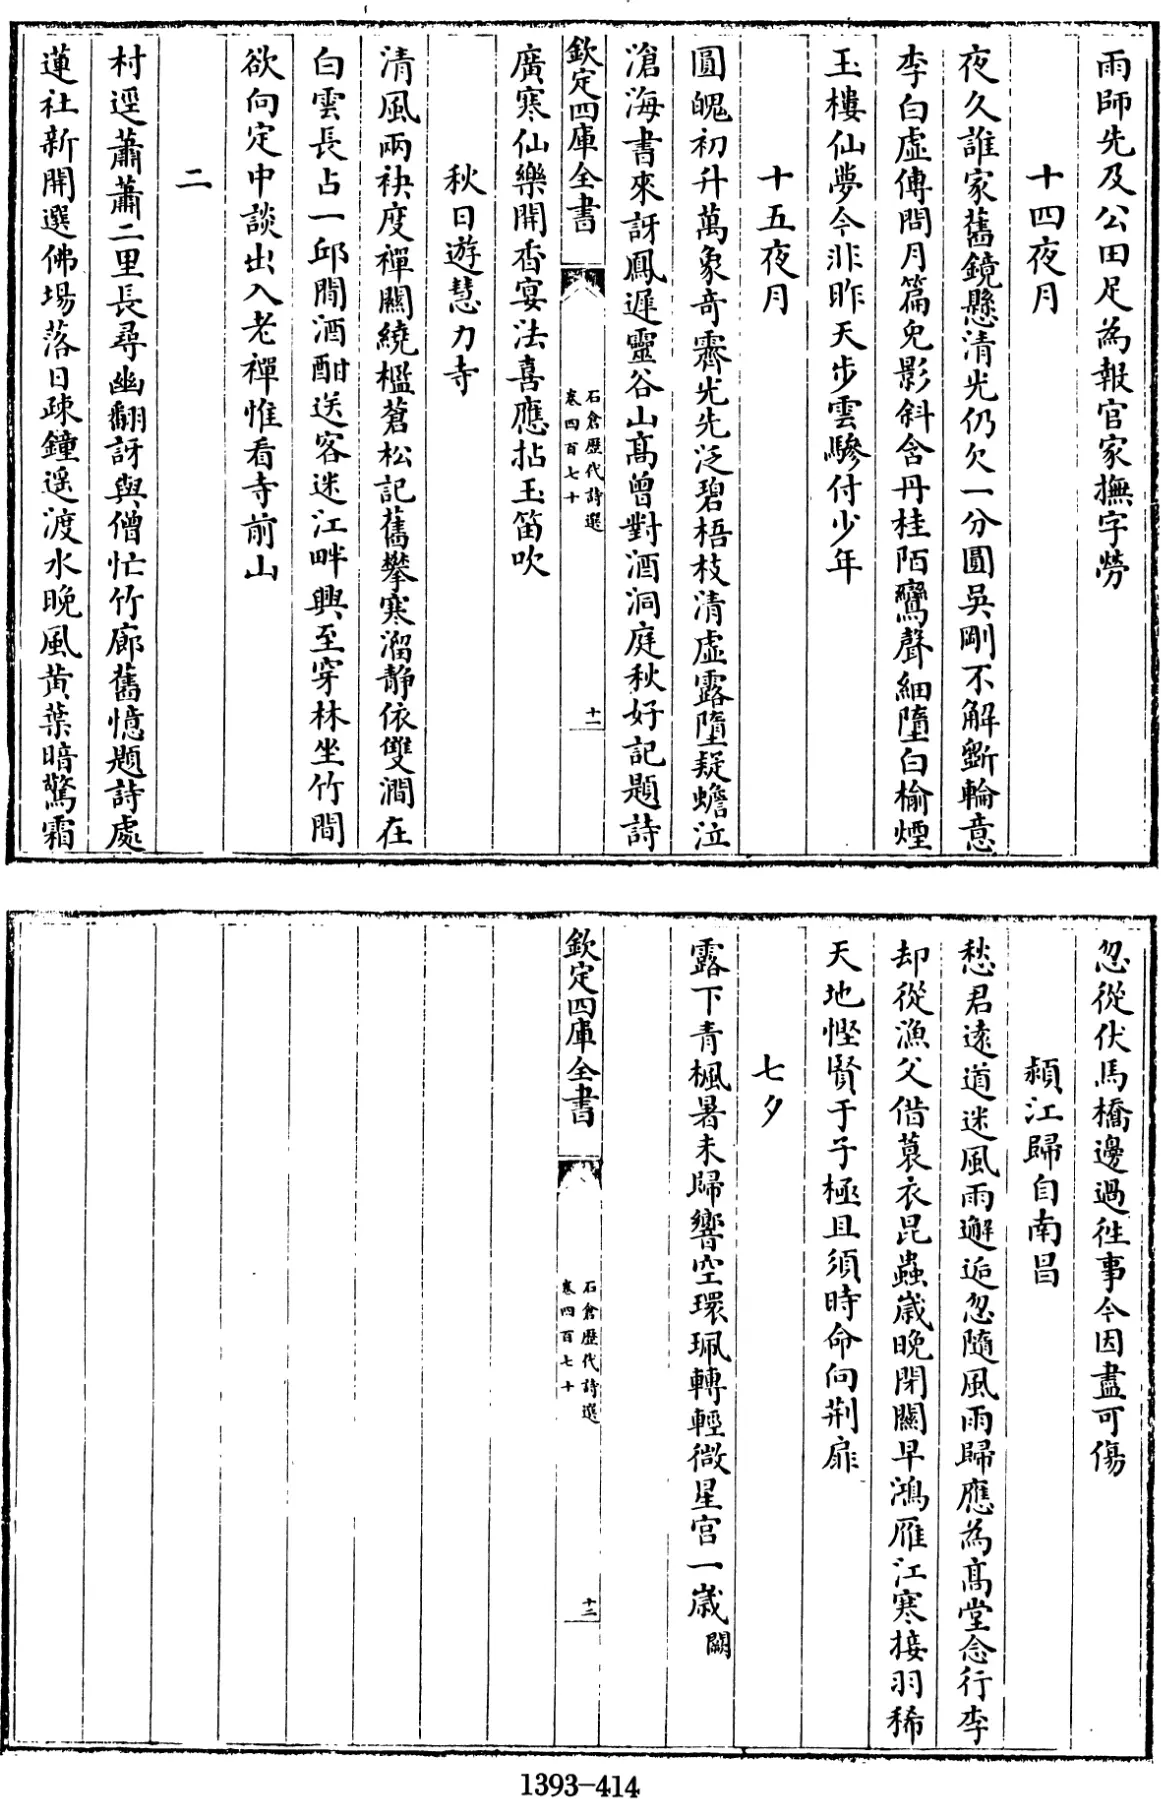 雨師先及公田足為報官家撫字勞
十四夜月
夜久誰家舊鏡懸清光仍欠一分圓吳剛不解斲輪意
李白虛傳問月篇兔影斜含丹桂陌鸞聲細墮白榆煙
玉樓仙夢今非昨天步雲驂付少年
十五夜月
圓魄初升萬象奇霽光先泛碧梧枝清虛露墮疑蟾泣
滄海書來訝鳳遲靈谷山髙曾對酒洞庭秋好記題詩
欽定四庫全書
石倉歷代詩選
卷四百七十
十一
廣寒仙樂開香宴法喜應拈玉笛吹
秋日遊慧力寺
清風兩袂度禪關繞檻蒼松記舊攀寒溜靜依雙澗在
白雲長占一邱閒酒酣送客迷江畔興至穿林坐竹間
欲向定中談出入老禪惟看寺前山
二
村逕蕭蕭二里長尋幽翻訝與僧忙竹廊舊憶題詩處
蓮社新開選佛場落日疎鐘遥渡水晚風黄葉暗驚霜
忽從伏馬橋邊過往事今因盡可傷
頫江歸自南昌
愁君遠道迷風雨邂逅忽隨風雨歸應為髙堂念行李
却從漁父借蓑衣昆蟲歲晚閉關早鴻雁江寒接羽稀
天地慳賢于子極且須時命向荆扉
七夕
露下青楓暑未歸響空環珮轉輕微星宫一歲闕
欽定四庫全書
石倉歷代詩選
卷四百七十
十二
1393-414